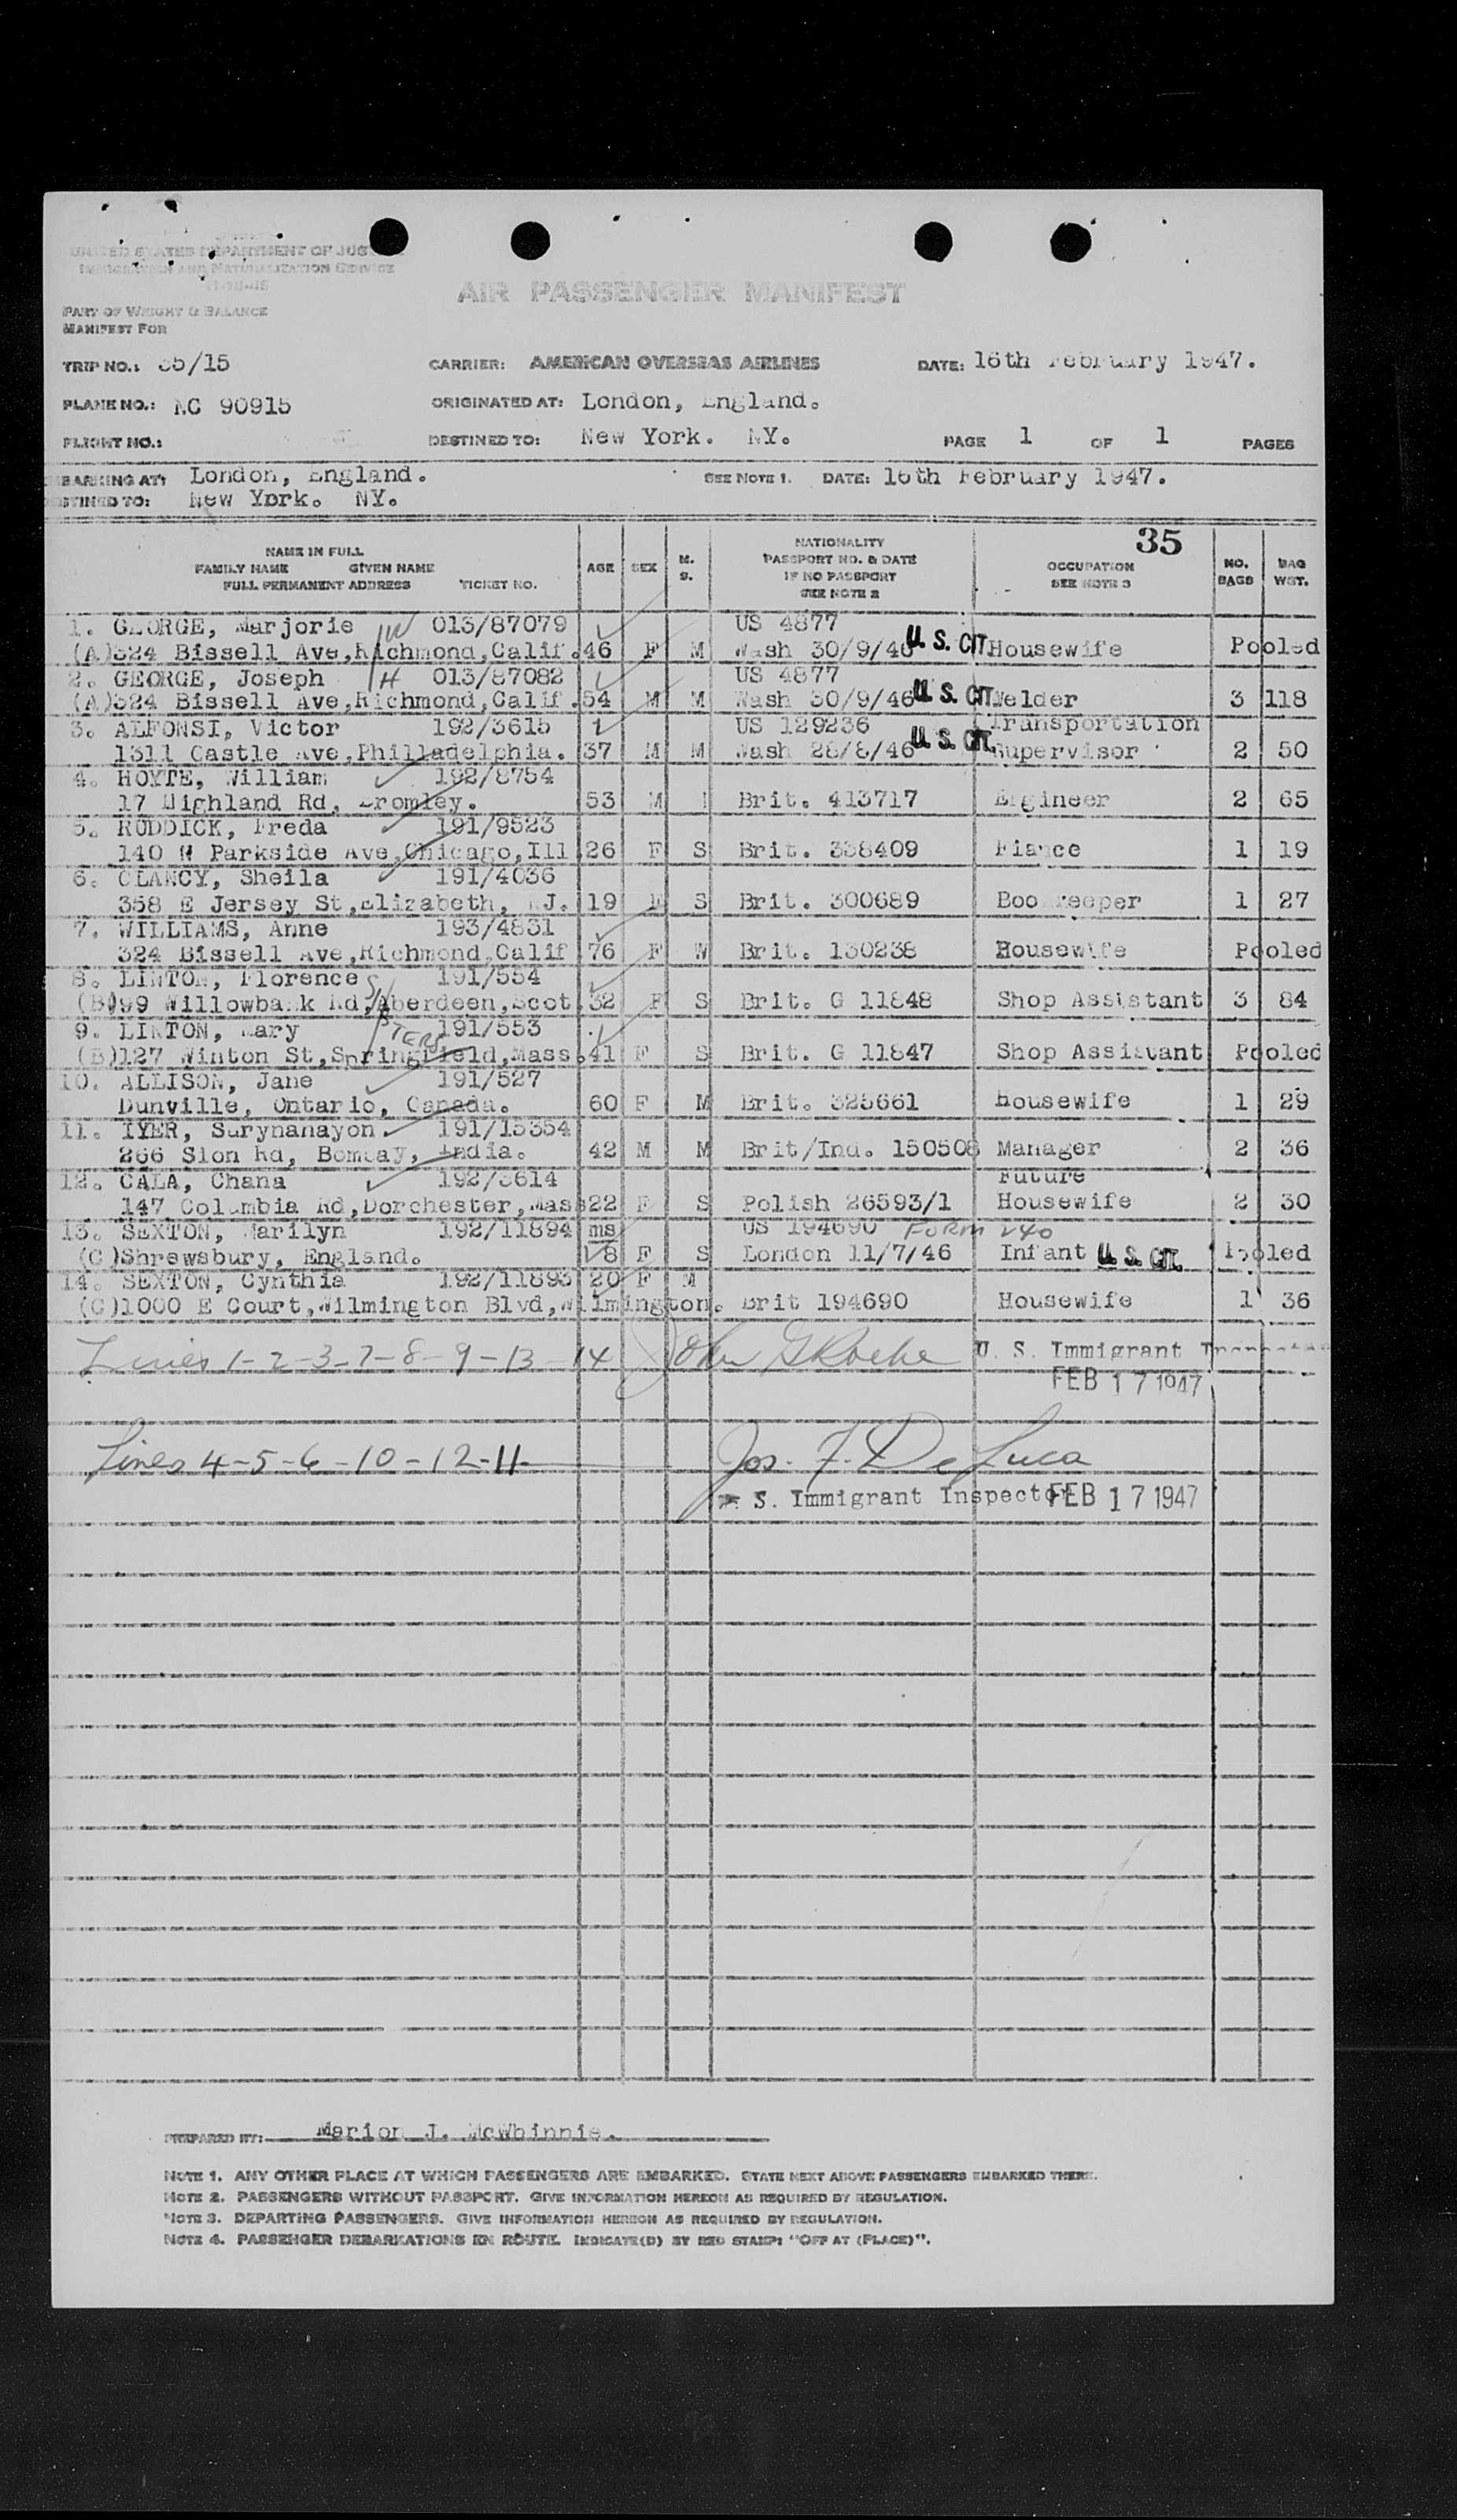 UNITED STATES DEPARTMENT OF JUS
IMMIGRATION AND NATURALIZATION SERVICE
AIR PASSENGER MANIFEST
PART OF WEIGHT & BALANCE
MANIFEST FOR
TRIP NO.: 35/15 CARRIER: AMERICAN OVERSEAS AIRLINES DATE: 16th February 1947.
PLANE NO.: NC 90915 ORIGINATED AT: London, England.
FLIGHT NO.: DESTINED TO: New York. NY. PAGE 1 OF 1 PAGES
BARKING AT: London, England. SEE NOTE 1. DATE: 16th February 1947.
STINED TO: New York. NY.
35
NAME IN FULL FAMILY NAME GIVEN NAME FULL PERMANENT ADDRESS TICKET NO. AGE SEX M. S. NATIONALITY PASSPORT NO. & DATE IF NO PASSPORT SEE NOTE 2 OCCUPATION SEE NOTE 3 NO. BAGS BAG WGT.
1. GEORGE, Marjorie W 013/87079 US 4877
(A)324 Bissell Ave,Richmond,Calif. 46 F M Wash 30/9/46 U. S. CIT. Housewife Pooled
2. GEORGE, Joseph H 013/87082 US 4877
(A)324 Bissell Ave,Richmond,Calif. 54 M M Wash 30/9/46 U. S. CIT. Welder 3 118
3. ALFONSI, Victor 192/3615 US 129236 Transportation
1311 Castle Ave,Philladelphia. 37 M M Wash 28/8/46 U. S. CIT. Supervisor 2 50
4. HOYTE, William 192/8754
17 Highland Rd, Bromley. 53 M Brit. 413717 Engineer 2 65
5. RUDDICK, Freda 191/9523
140 N Parkside Ave,Chicago,Ill 26 F S Brit. 338409 Fiance 1 19
6. CLANCY, Sheila 191/4036
358 E Jersey St,Elizabeth, NJ. 19 F S Brit. 300689 Bookkeeper 1 27
7. WILLIAMS, Anne 193/4831
324 Bissell Ave,Richmond,Calif 76 F W Brit. 130238 Housewife Pooled
8. LINTON, Florence 191/554
(B)99 Willowbank Rd,Aberdeen,Scot 32 F S Brit. G 11848 Shop Assistant 3 84
9. LINTON, Mary SISTERS 191/553
(B)127 Winton St,Springfield,Mass. 41 F S Brit. G 11847 Shop Assistant Pooled
10. ALLISON, Jane 191/527
Dunville, Ontario, Canada. 60 F M Brit. 325661 Housewife 1 29
11. IYER, Surynanayon 191/15354
266 Sion Rd, Bombay, India. 42 M M Brit/Ind. 150508 Manager 2 36
12. CALA, Chana 192/3614 Future
147 Columbia Rd,Dorchester,Mass 22 F S Polish 26593/1 Housewife 2 30
13. SEXTON, Marilyn 192/11894 ms US 194690 FORM 240
(C)Shrewsbury, England. 8 F S London 11/7/46 Infant U. S. CIT. Pooled
14. SEXTON, Cynthia 192/11893 20 F M
(C)1000 E Court,Wilmington Blvd,Wilmington. Brit 194690 Housewife 1 36
Lines 1-2-3-7-8-9-13-14 John G Roche U. S. Immigrant Inspector
FEB 17 1947
Lines 4-5-6-10-12-11- Jos. F. De Luca
U. S. Immigrant Inspector FEB 17 1947
PREPARED BY: Marion J. McWhinnie.
NOTE 1. ANY OTHER PLACE AT WHICH PASSENGERS ARE EMBARKED. STATE NEXT ABOVE PASSENGERS EMBARKED THERE.
NOTE 2. PASSENGERS WITHOUT PASSPORT. GIVE INFORMATION HEREON AS REQUIRED BY REGULATION.
NOTE 3. DEPARTING PASSENGERS. GIVE INFORMATION HEREON AS REQUIRED BY REGULATION.
NOTE 4. PASSENGER DEBARKATIONS EN ROUTE. INDICATE(D) BY RED STAMP: "OFF AT (PLACE)".